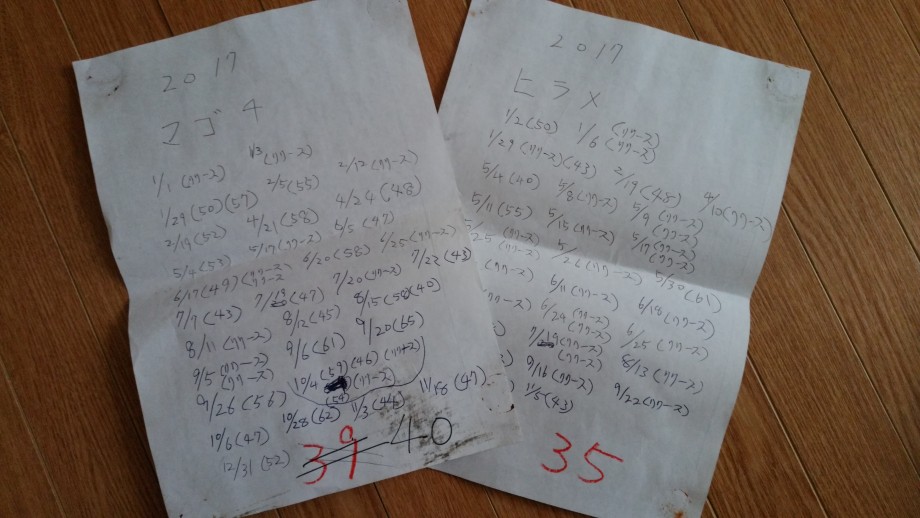 2017
マゴチ
1/3(リリース)
1/1(リリース)
2/12(リリース)
1/29(50)(57) 2/5(55)
2/19(52) 4/21(58) 4/24(48)
5/4(53) 5/17(リリース) 6/5(47)
6/17(49)(リリース) 6/20(58) 6/25(リリース)
リリース
7/7(43) 7/19(47) 7/20(リリース) 7/23(43)
8/11(リリース) 8/12(45) 8/15(58)(40)
9/5(リリース) 9/6(61) 9/20(65)
(リリース)
10/4(59)(46)(リリース)
(リリース)
(54)
9/26(56)
10/6(47) 10/28(62) 11/3(46) 11/18(47)
12/31(52)
39 40
2017
ヒラメ
1/2(50) 1/6(リリース)
(リリース)
1/29(リリース)(43) 2/19(48)
5/4(40) 5/8(リリース) 5/9(リリース) 9/10(リリース)
(リリース)
5/11(55) 5/15(リリース) 5/17(リリース)
(リリース)
25(リリース) 5/26(リリース) 5/30(61)
(リリース)
(リリース) 6/11(リリース) 6/18(リリース)
(リリース) 6/29(リリース) 6/25(リリース)
(リリース)
7/19(リリース) 8/13(リリース)
(リリース)
9/16(リリース) 9/22(リリース)
11/5(43)
35